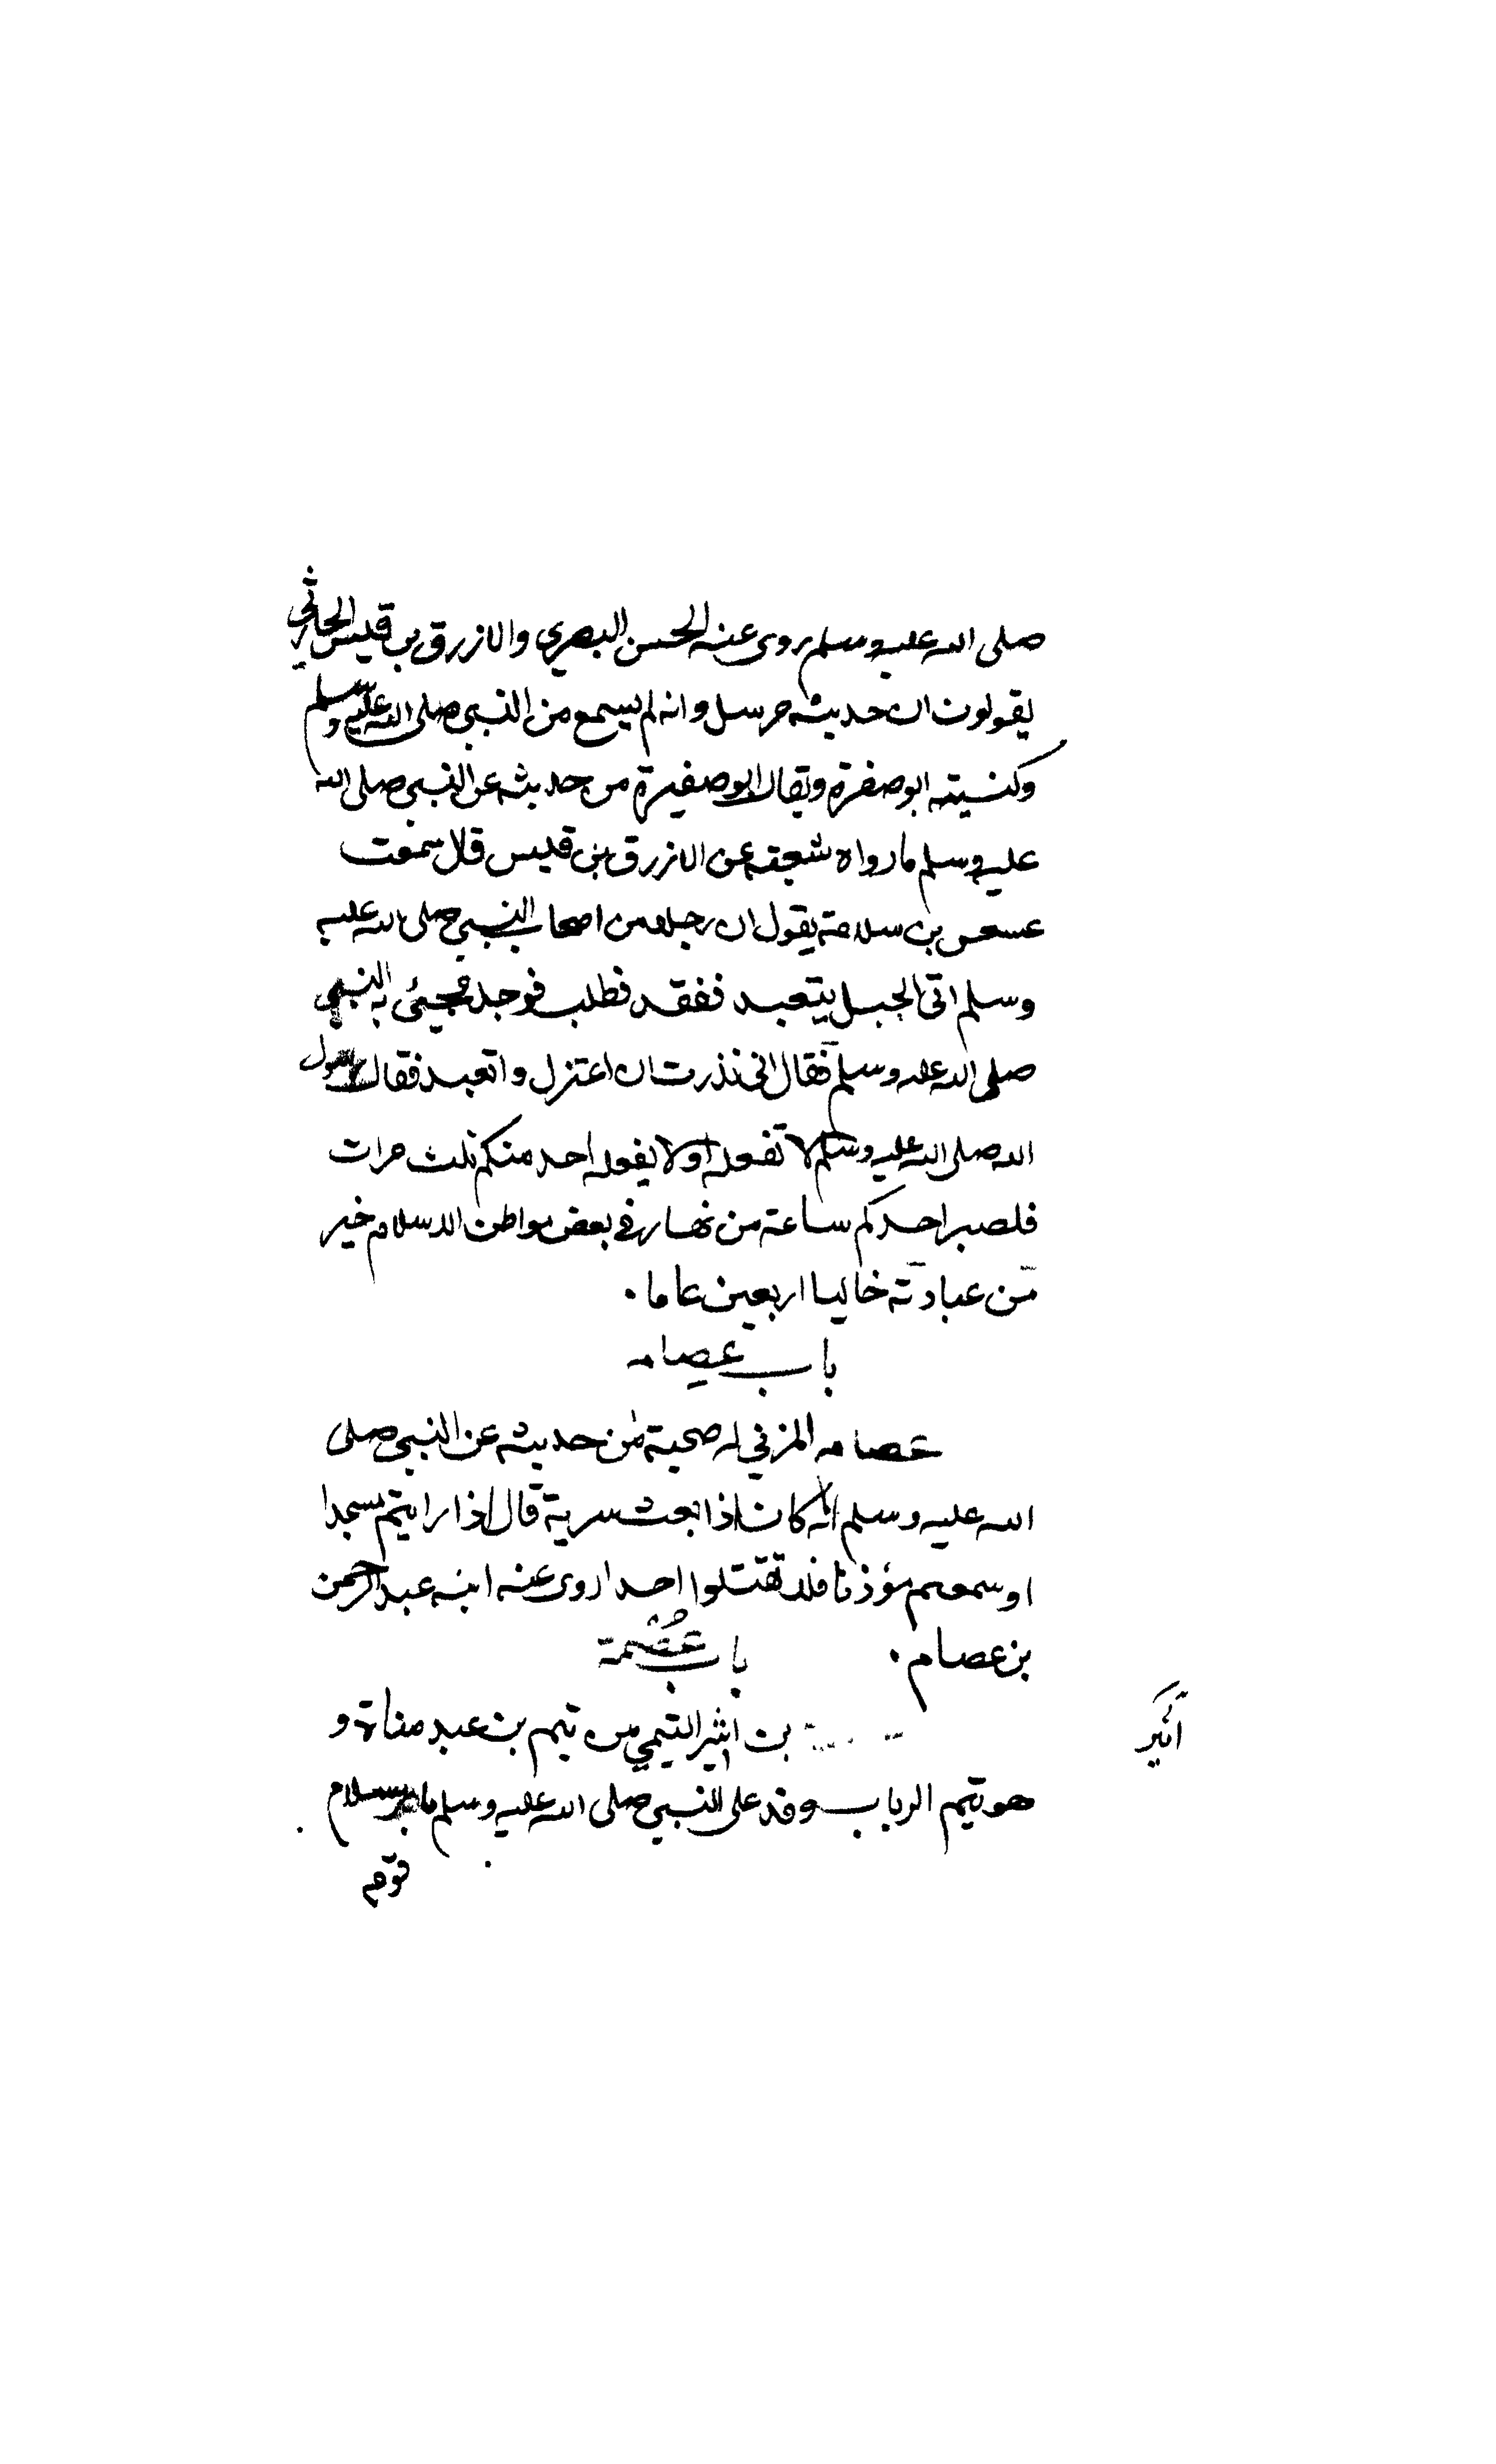 صلى الله عليه وسلم روى عنه الحسن البصري والازرق بن قيس الحارثي
يقولون ان حديثه مرسل وانه لم يسمع من النبي صلى الله عليه وسلم
وكنيته ابو صفرة ويقال ابو صفيرة من حديثه عن النبي صلى الله
عليه وسلم ما رواه شعبة عن الازرق بن قيس قال سمعت
عسعس بن سلامة يقول ان رجلا من اصحاب النبي صلى الله عليه
وسلم اتى الجبل يتعبد ففقد فطلب فوجد فجيئ به النبي
صلى الله عليه وسلم فقال انى نذرت ان اعتزل واتعبد فقال رسول
الله صلى الله عليه وسلم لا تفعله او لا يفعله احد منكم ثلث مرات
فلصبر احدكم ساعة من نهار في بعض مواطن الاسلام خير
من عبادته خاليا اربعين عاما .
باب عصام
عصام المزني له صحبة من حديثه عن النبي صلى
الله عليه وسلم انه كان اذا بعث سرية قال اذا رايتم مسجدا
او سمعتم مؤذنا فلا تقتلوا احدا روى عنه ابنه عبد الرحمن
بن عصام .
باب عصمة
بن اثير التيمي من تيم بن عبد مناة و
هو تيم الرباب وفد على النبي صلى الله عليه وسلم باسلام
قومه